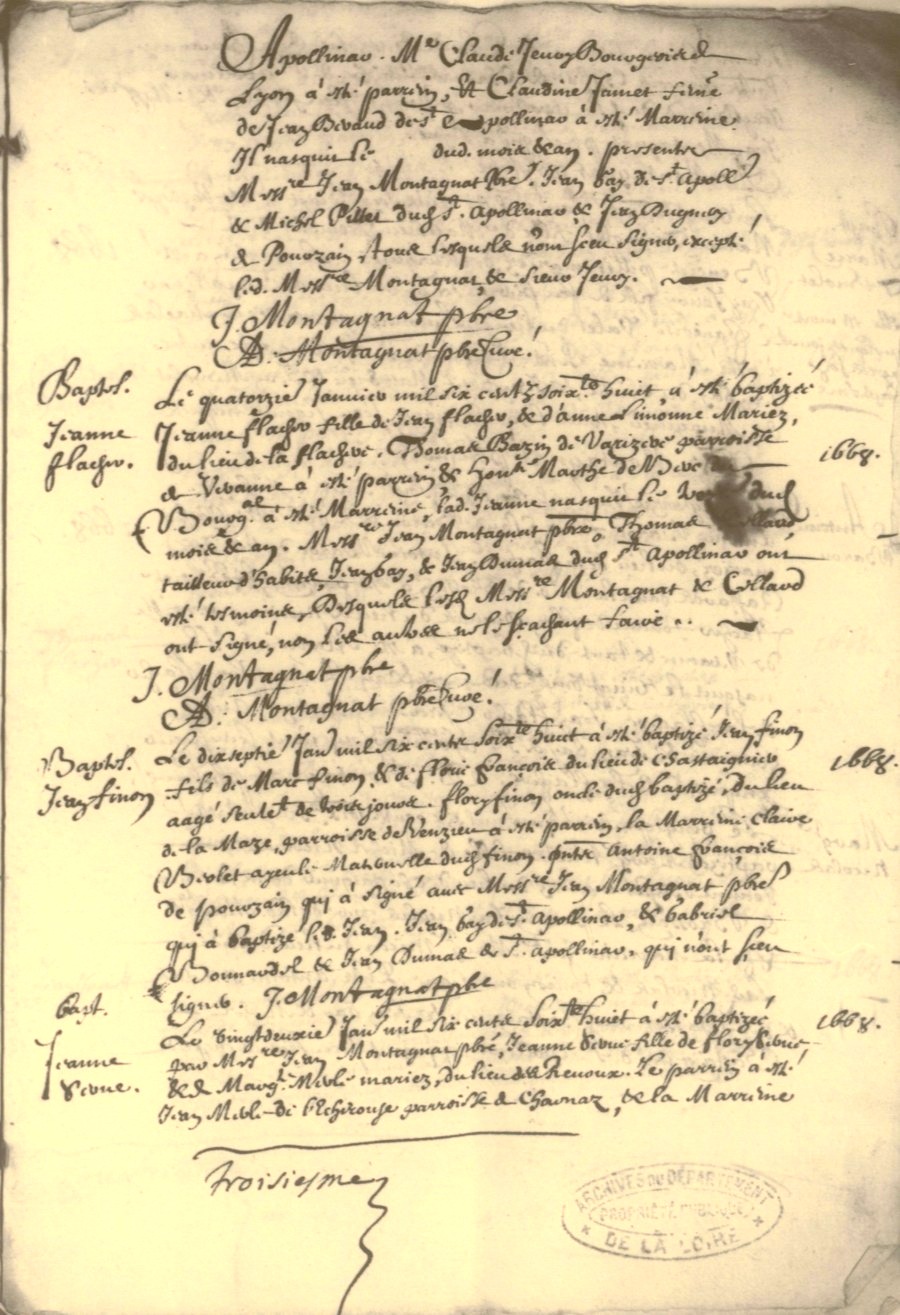 Apollinar. Mre Claude Jenoy Bourgeois de
Lyon à esté parrein, et Claudine Jamet feme
de Jean Beraud de st Apollinar à esté Marreine.
Il nasquit le dud. mois & an. presents
Messre Jean Montagnat Pbre, Jean bay de st Apollr
& Michel Pillet dud st. Apollinar & Jean
de Pouzain, tous lesquels n'ont sceu signer, excepté
led. Messre Montagnat, & sieur Jenoy.
J. Montagnat pbre
A. Montagnat pbre Curé.
Baptes.
Jeanne
flacher.
Le quatorzie Janvier mil six centz soixte huict, a esté baptizée
Jeanne flacher fille de Jean flacher, & d'anne Limonne Mariez,
du lieu de la flachere. Thomas Bazin de Varizere parroisse
de Viranne à esté parrein, & honle Marthe de
1668.
Bourgal à esté Marreine, lad. Jeanne nasquit le dud
mois & an. Messre Jean Montagnat pbre, Thomas
tailleur d'habits, Jean bay, & Jean Dumas dud st Apollinar ont
esté tesmoins, Desquels lesd Messre Montagnat & Collaud
ont signé, non les autres ne le sçachant faire..
J. Montagnat pbre
A. Montagnat pbre Curé.
Baptes.
Jean finon
Le dixseptie Janr mil six cents soixte huict à esté baptizé Jean finon
fils de Marc finon, & de florie françois du lieu de Chastaignier
1668.
aagé seulet de trois jours. flory finon oncle dud baptizé, du lieu
de la Maze, parroisse de Venzieu à esté parrein, la Marreine Claire
Violet ayeule Maternelle dud finon. pnts Antoine françois
de pouzain qui à signé avec Messre Jean Montagnat pbre
qui à baptizé led. Jean. Jean bay de st. Apollinar, & Gabriel
Bonnardel & Jean Dumas de st. Apollinar, qui n'ont sceu
signer. J. Montagnat pbre
bapt.
Jeanne
Seüve.
Le vingtdeuxie Janr mil six cents soixte huict à esté baptizée
1668.
par Messre Jean Montagnat pbre, Jeanne Seüve fille de flory Seüve
& de Margte Miole mariez, du lieu des Renoux. Le parrein à esté
Jean Miole de l'Echirouse parroisse de Charnaz, & la Marreine
troisiesme
ARCHIVES DU DEPARTEMENT
PROPRIÉTÉ PUBLIQUE
DE LA LOIRE